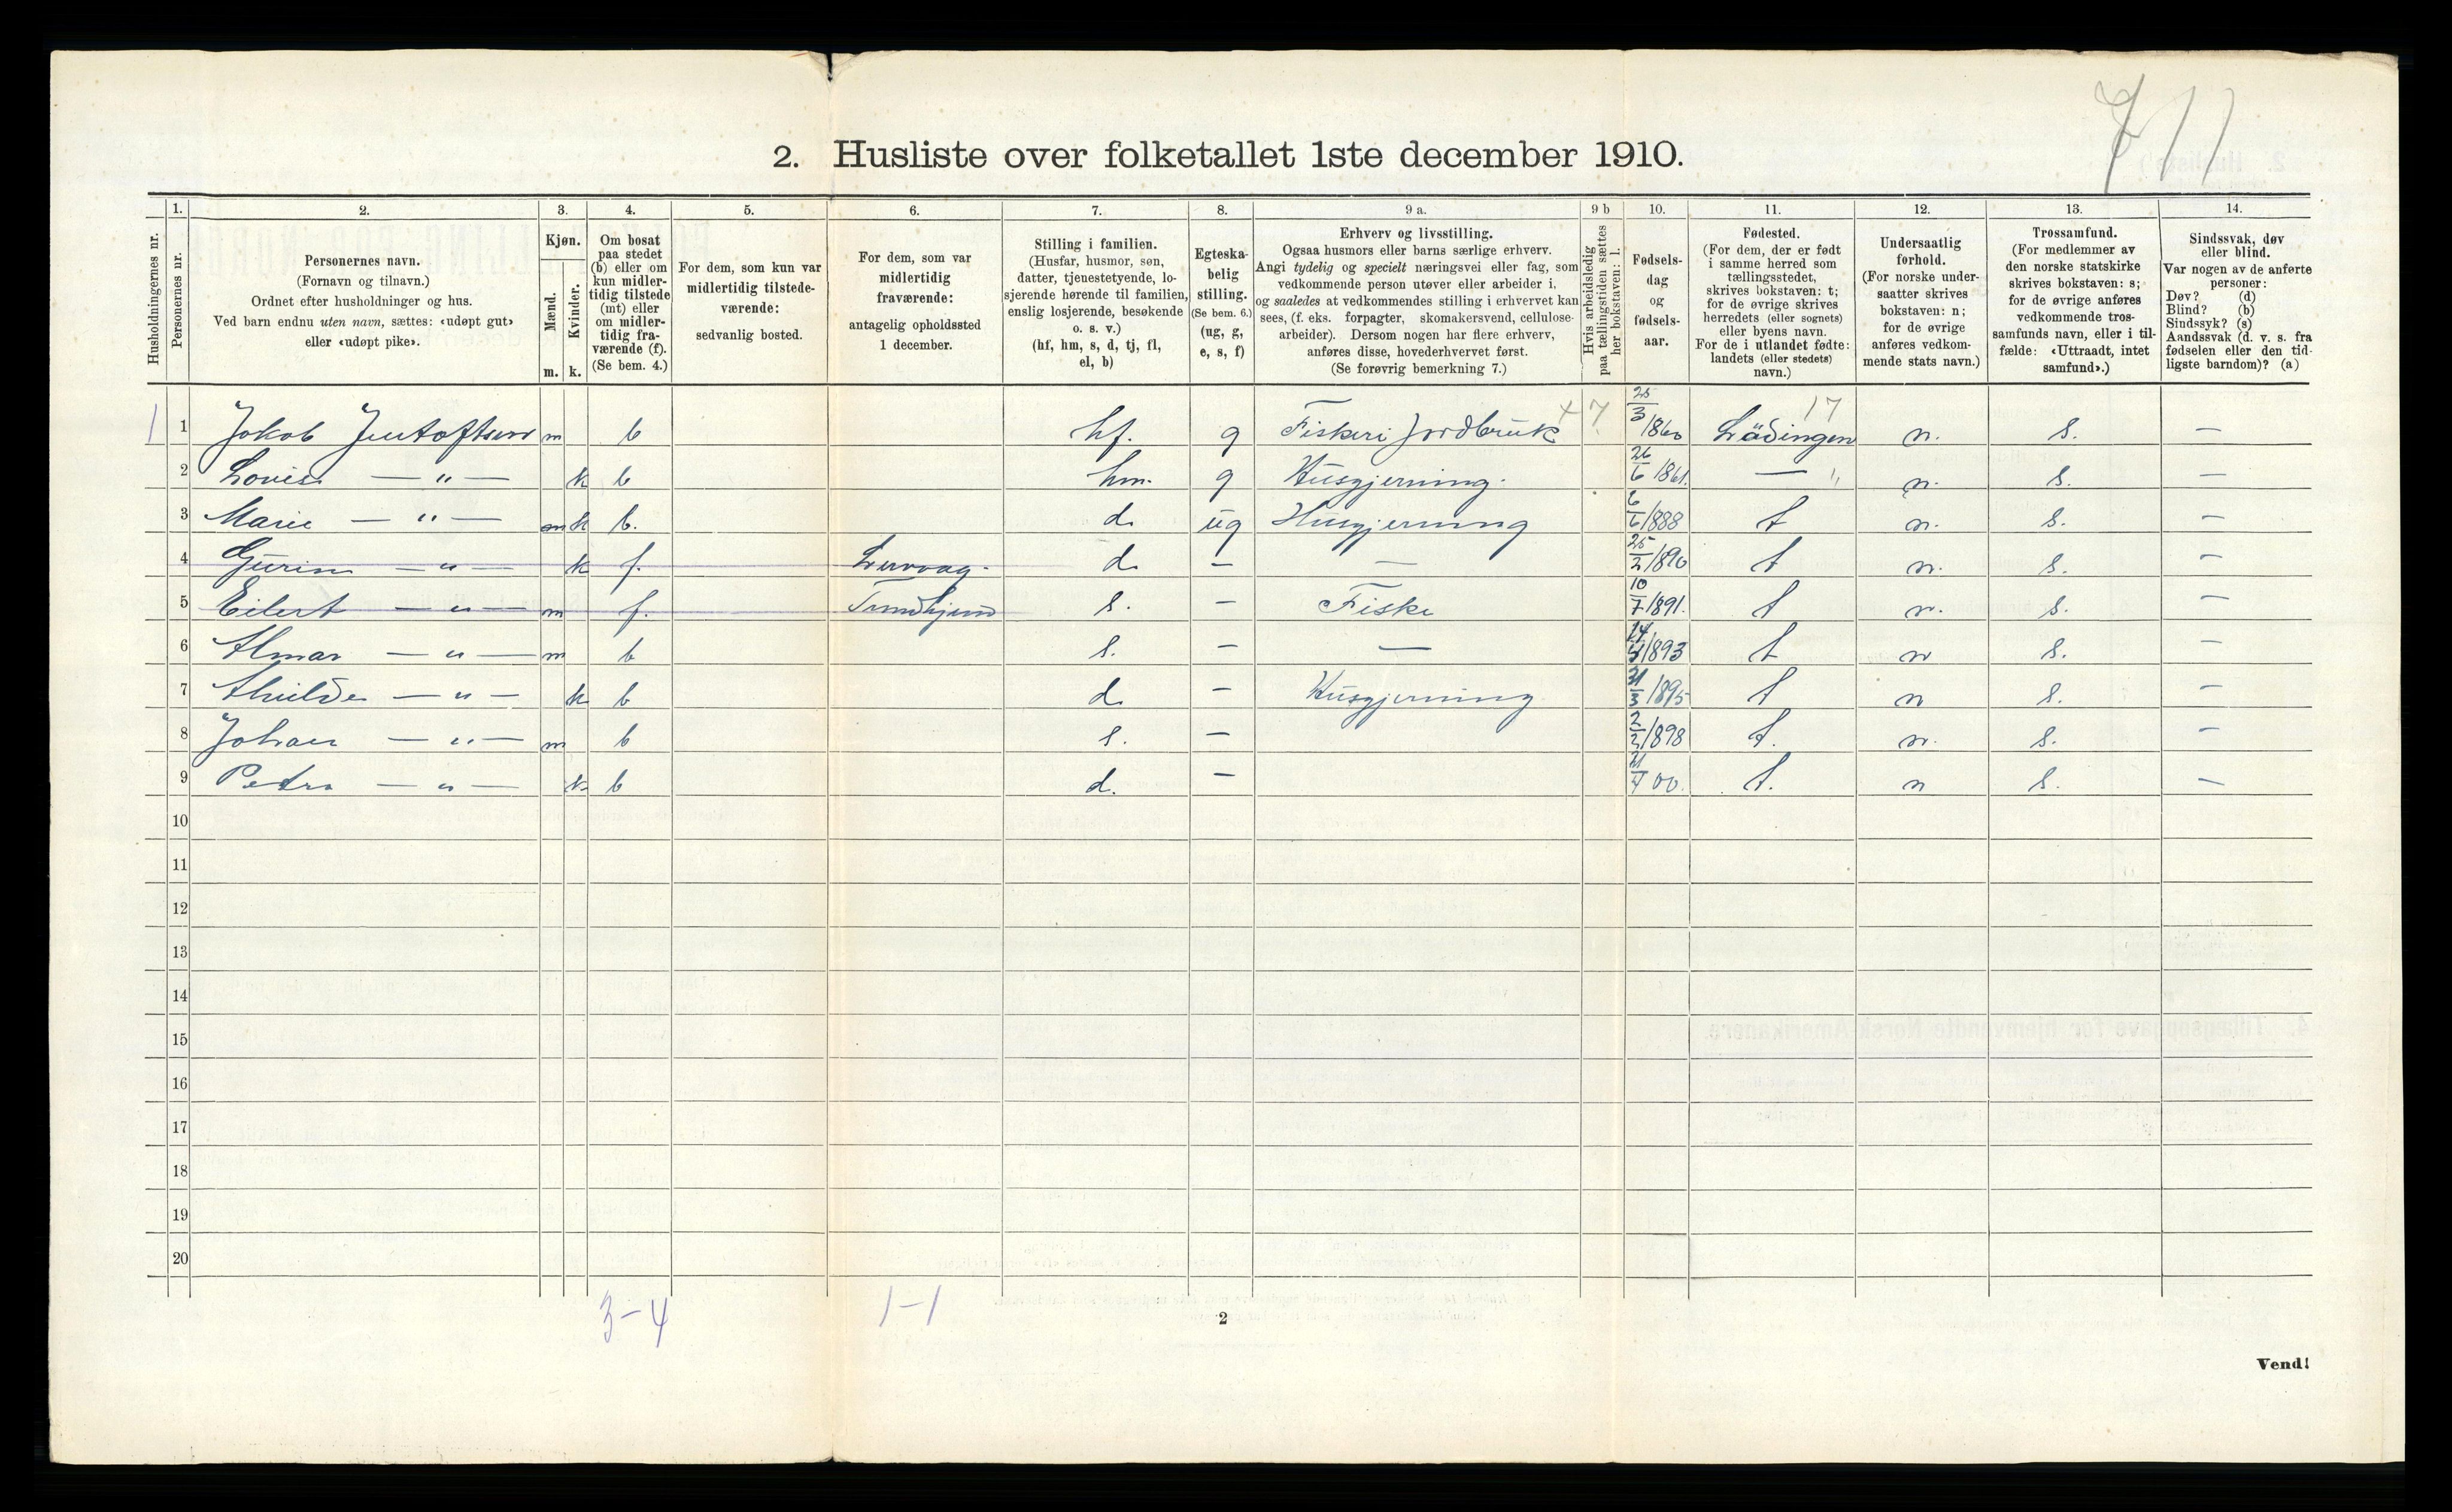 711
2. Husliste over folketallet 1ste december 1910.
Husholdningernes nr.
1.
Personernes nr.
2.
Personernes navn.
(Fornavn og tilnavn.)
Ordnet efter husholdninger og hus.
Ved barn endnu uten navn, sættes: «udøpt gut»
eller «udøpt pike».
3.
Kjøn.
Mænd.
Kvinder.
m. k.
4.
Om bosat
paa stedet
(b) eller om
kun midler-
tidig tilstede
(mt) eller
om midler-
tidig fra-
værende (f).
(Se bem. 4.)
5.
For dem, som kun var
midlertidig tilstede-
værende:
sedvanlig bosted.
6.
For dem, som var
midlertidig
fraværende:
antagelig opholdssted
1 december.
7.
Stilling i familien.
(Husfar, husmor, søn,
datter, tjenestetyende, lo-
sjerende hørende til familien,
enslig losjerende, besøkende
o. s. v.)
(hf, hm, s, d, tj, fl,
el, b)
8.
Egteska-
belig
stilling.
(Se bem. 6.)
(ug, g,
e, s, f)
9 a.
Erhverv og livsstilling.
Ogsaa husmors eller barns særlige erhverv.
Angi tydelig og specielt næringsvei eller fag, som
vedkommende person utøver eller arbeider i,
og saaledes at vedkommendes stilling i erhvervet kan
sees, (f. eks. forpagter, skomakersvend, cellulose-
arbeider). Dersom nogen har flere erhverv,
anføres disse, hovederhvervet først.
(Se forøvrig bemerkning 7.)
9 b
Hvis arbeidsledig
paa tællingstiden sættes
her bokstaven: l.
10.
Fødsels-
dag
og
fødsels-
aar.
11.
Fødested.
(For dem, der er født
i samme herred som
tællingsstedet,
skrives bokstaven: t;
for de øvrige skrives
herredets (eller sognets)
eller byens navn.
For de i utlandet fødte:
landets (eller stedets)
navn.)
12.
Undersaatlig
forhold.
(For norske under-
saatter skrives
bokstaven: n;
for de øvrige
anføres vedkom-
mende stats navn.)
13.
Trossamfund.
(For medlemmer av
den norske statskirke
skrives bokstaven: s;
for de øvrige anføres
vedkommende tros-
samfunds navn, eller i til-
fælde: «Uttraadt, intet
samfund».)
14.
Sindssvak, døv
eller blind.
Var nogen av de anførte
personer:
Døv? (d)
Blind? (b)
Sindssyk? (s)
Aandssvak (d. v. s. fra
fødselen eller den tid-
ligste barndom)? (a)
1 1 Jokob Jentoftsen m b hf. g Fiskeri Jordbruk 25/3 1860 Lødingen 17 n. s. —
2 — „ — k b hm. g Husgjerning. 26/6 1861. — „ n. s. —
3 Marie — „ — k b. d. ug Husgjerning 6/6 1888 t n. s. —
4 — „ — k f. d — — 25/2 1890 t n. s. —
5 Eilert — „ — m f. s. — Fiske 10/7 1891. t n. s. —
6 Almar — „ — m b s. — — 1893 t n s. —
7 — „ — k b d — Husgjerning 1895 t n s. —
8 Johan — „ — m b s. — 2/2 1898 t. n. s. —
9 Petra — „ — k b d. — 00. t. n s. —
10
11
12
13
14
15
16
17
18
19
20
3-4 1-1
2
Vend!